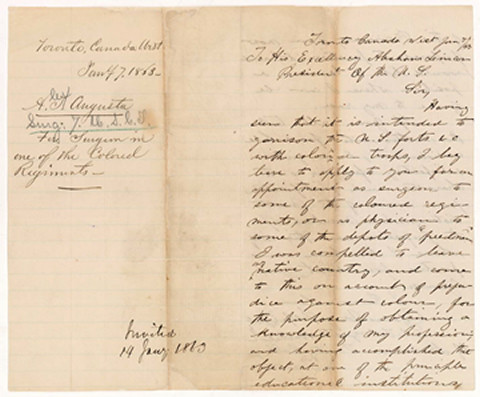 Toronto, Canada West
Jany 7, 1863.
A. T. Augusta
Surg. 7. U.S.C.T.
For Surgeon in
one of the Colored
Regiments.
Invited
14 Jany 1863
Toronto Canada West Jan 7/63
To His Excellency Abraham Lincoln
President Of the U. S.
Sir,
Having
seen that it is intended to
garrison the U.S. forts &c
with colored troops, I beg
leave to apply to you for an
appointment as surgeon to
some of the coloured regi-
ments, or as physician to
some of the depots of "freedmen"
I was compelled to leave
my native country, and come
to this on account of preju-
dice against colour, for
the purpose of obtaining a
knowledge of my profession;
and having accomplished that
object, at one of the principle
educational institutions